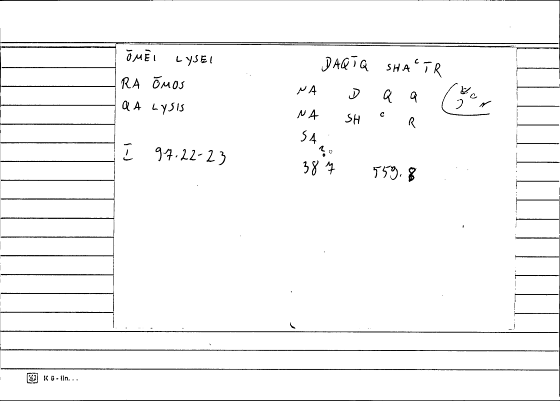 ŌMĒI LYSEI
RA ŌMOS
QA LYSIS
I 97.22-23
DAQĪQ SHAᶜĪR
NA D Q Q
NA SH ᶜ R
SA
387 559.8